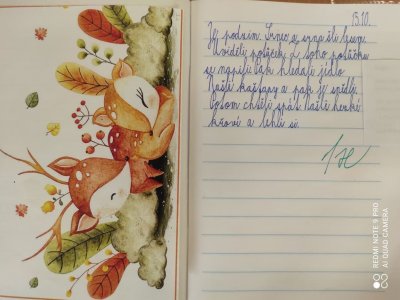 13.10.
Jej podzim. Srnec a srna šli lesem.
Uviděli potůček. Z toho potůčku
se napili. Pak hledali jídlo.
Našli kaštany a pak je snědli.
Potom chtěli spát. Našli hezké
křoví a lehli si.
1
REDMI NOTE 9 PRO
AI QUAD CAMERA